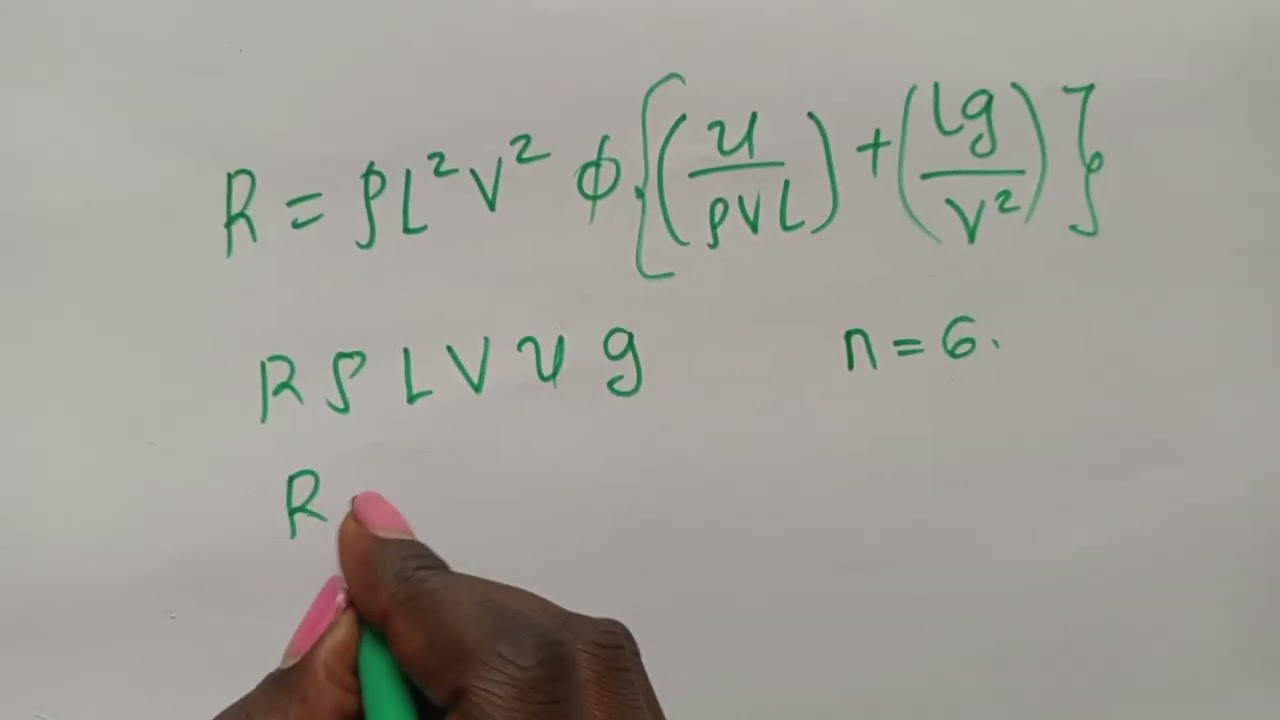 R = ρL²V² ϕ{(μ/ρVL) + (Lg/V²)}
R ρ L V μ g n = 6.
R